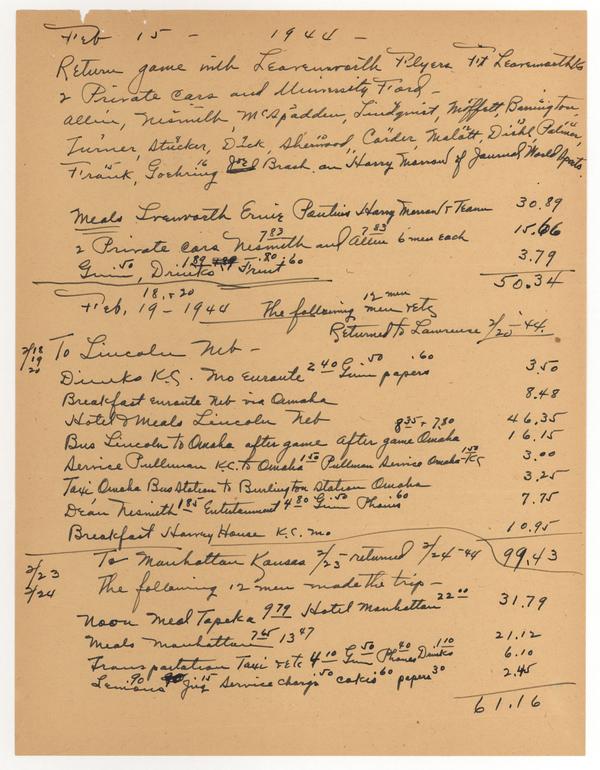 Feb 15 - 1944 -
Return game with Leavenworth Flyers Ft Leavenworth Ks
2 Private cars and University Ford -
Allen, Nesmith, McSpadden, Lindquist, Moffett, Barrington,
Turner, Stucker, Dick, Sherwood, Corder, Malott, Diehl, Palmer,
Frank, Goehring Joe Brach. on Harry Morrow of Journal World Sports.
Meals Lvenworth Ernie Harry Morrow & Team 30.89
2 Private cars Nesmith 7 83 and Allen 7 83 6 men each 15.66
Gum .50, Drinks 1 89 Fruit .80 .60 3.79
50.34
18, & 20
Feb, 19 - 1944 The following 12 men men & etc
Returned to Lawrence 2/20 - 44.
2/18 19 20 To Lincoln Neb -
Drinks K.C. Mo Enroute 2 40 Gum .50 papers .60 3.50
Breakfast Enroute Neb via Omaha 8.48
Hotel & Meals Lincoln Neb 46.35
Bus Lincoln to Omaha after game after game Omaha 8 35 & 7.80 16.15
Service Pullman K.C. to Omaha 1 50 Pullman Service Omaha - KC 1 50 3.00
Taxi Omaha Bus Station to Burlington Station Omaha 3.25
Dean Nesmith 1 85 Entertainment 4 80 Gum .50 Phones 60 7.75
Breakfast Harvey House K.C. Mo 10.95
99.43
2/23 To Manhattan Kansas 2/23 - returned 2/24 - 44
2/24 The following 12 men made the trip -
Noon Meal Topeka 9 79 Hotel Manhattan 22 00 31.79
Meals Manhattan 7 65 13 47 21.12
Transportation Taxi & etc 4 10 Gum 50 Phones 40 Drinks 1 10 6.10
Lemons .90 Jug 15 Service Charge 50 cokes 60 papers 30 2.45
61.16